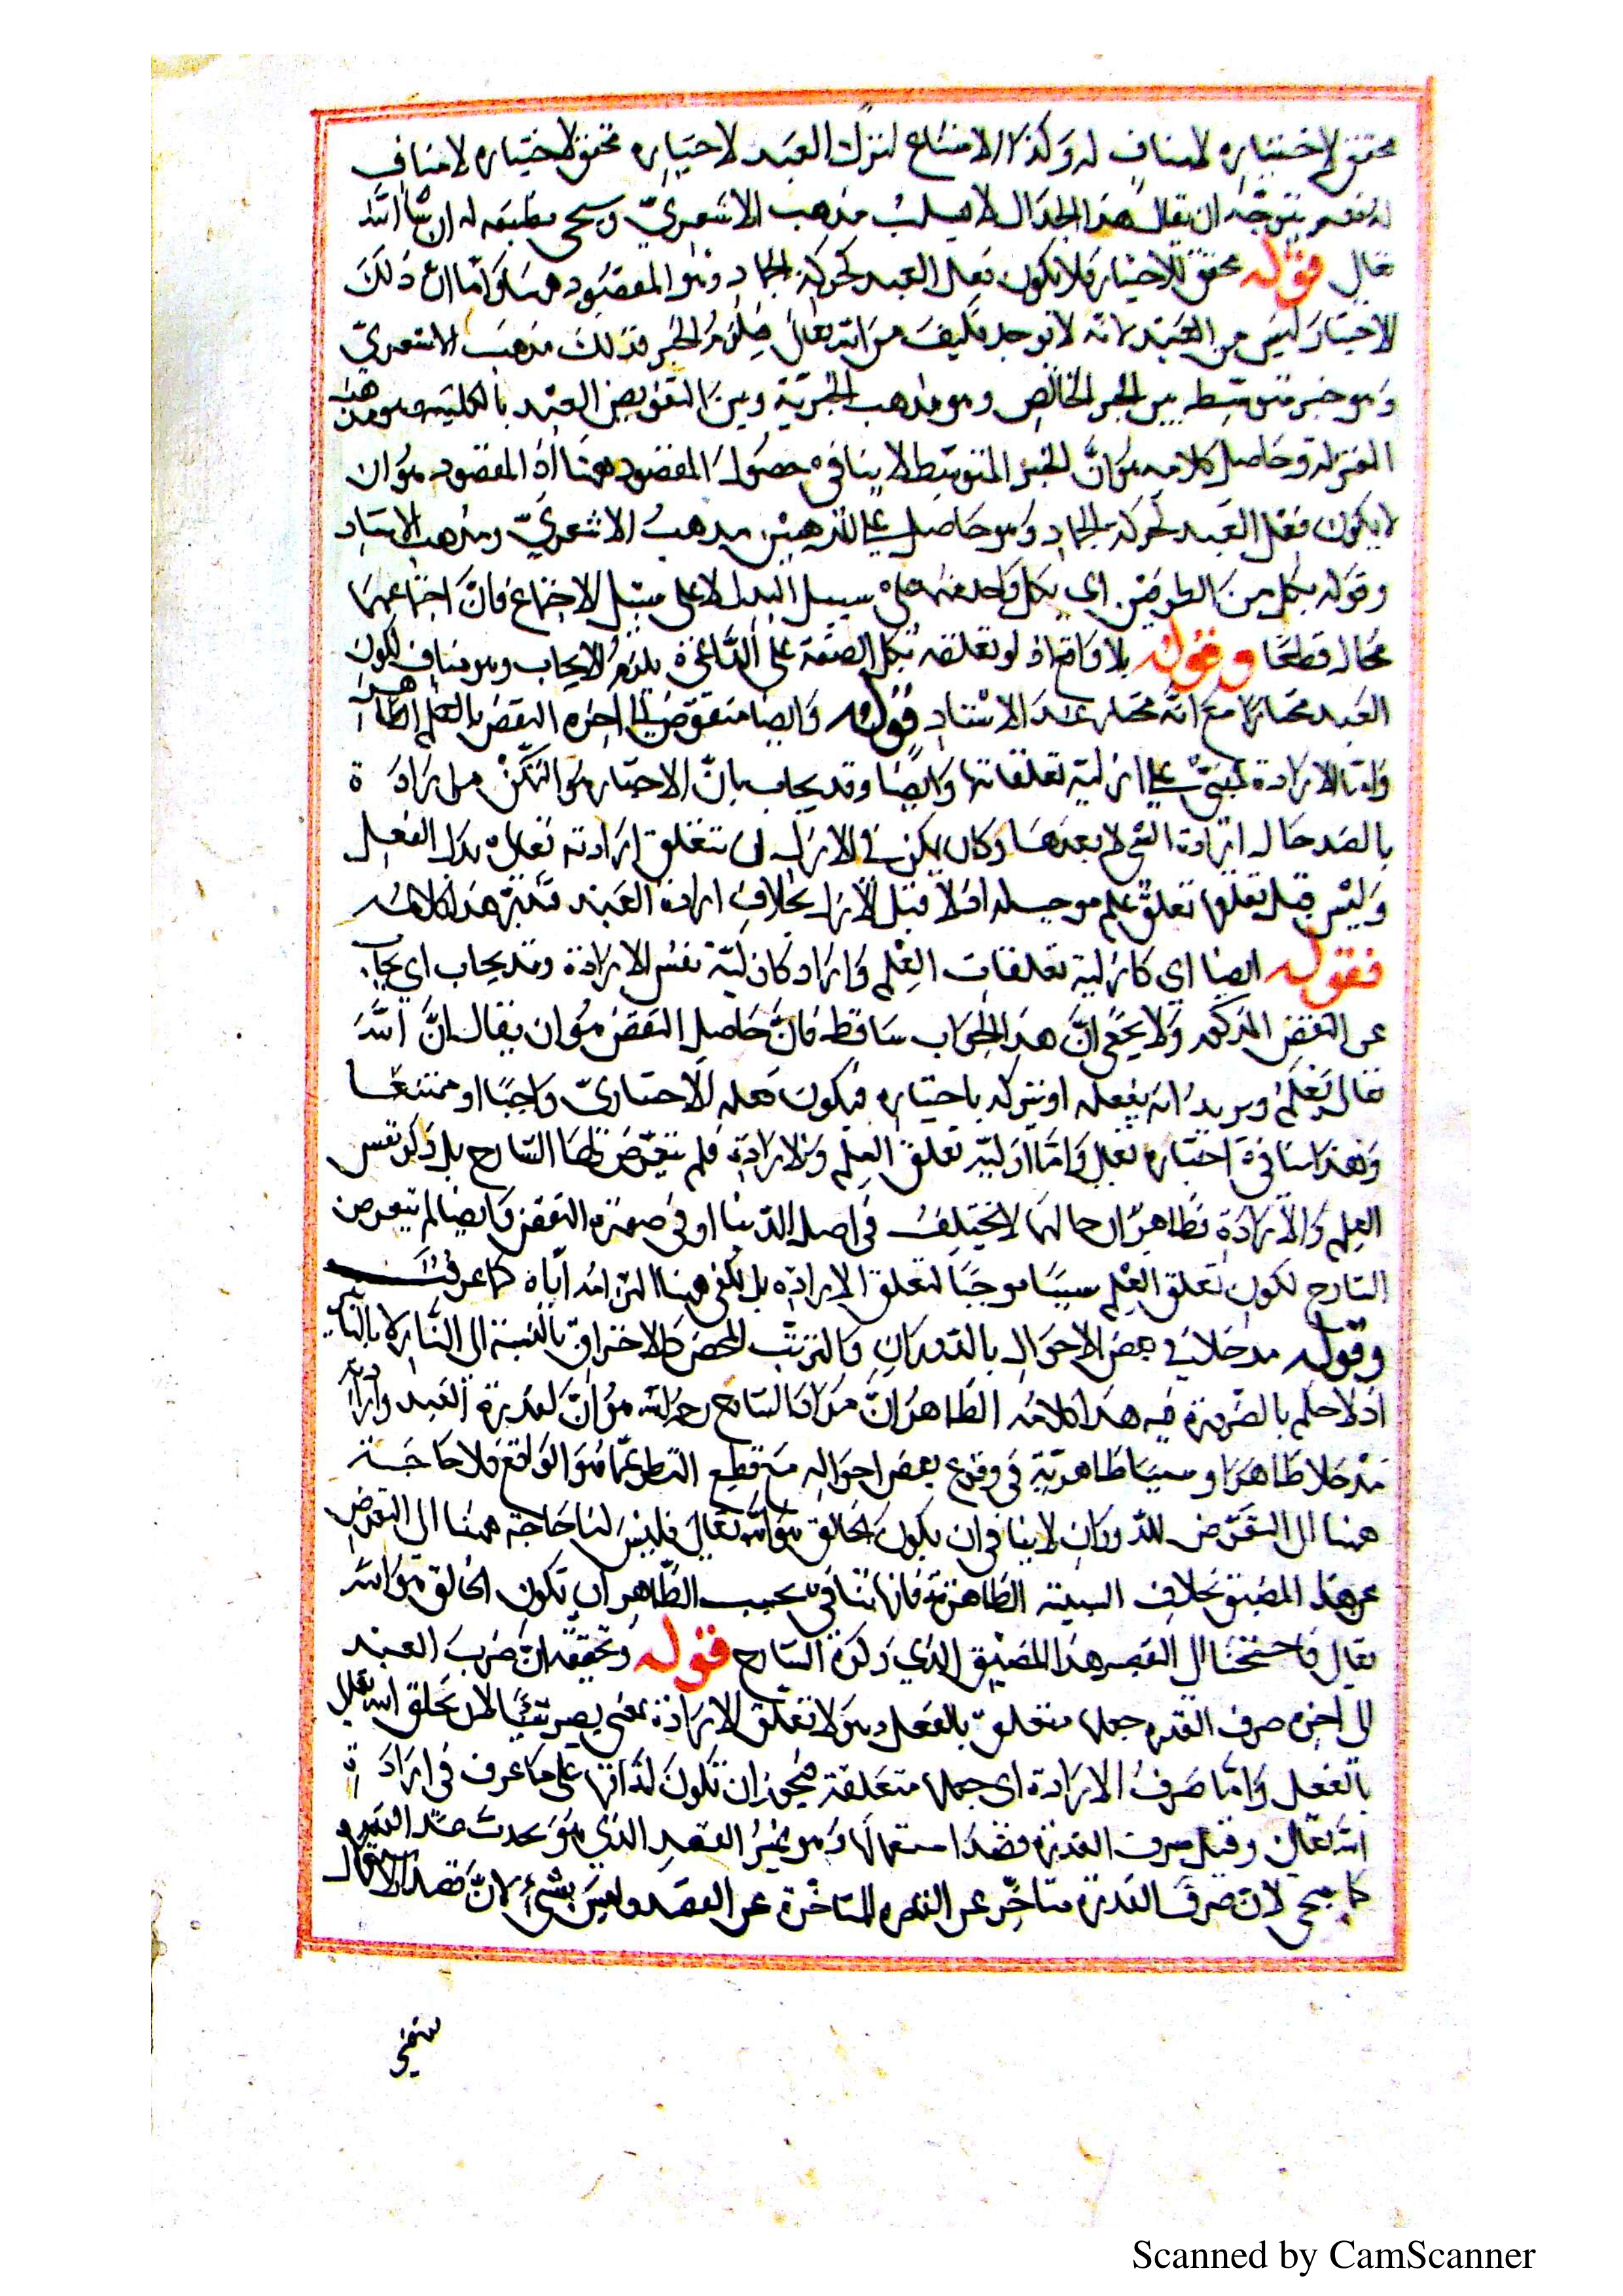 محقق لاختياره لا مناف له وكذا الامتناع لترك العبد لاختياره محقق لاختياره لا مناف
له نعم يتوجه ان يقال هذا الجدال لا يسلب مذهب الاشعري وسيجئ مطبقه له ان شاء الله
تعالى قوله محقق للاختيار فلا يكون فعل العبد كحركة الجماد وهو المقصود هنا واما ان ذلك
الاختيار ليس من العبد لانه لا يوجد فكيف من الله تعالى فيلزم الجبر فذلك مذهب الاشعري
وهو جبر متوسط بين الجبر الخالص وهو مذهب الجبرية وبين التفويض العبد بالكلية وهو مذهب
المعتزلة وحاصل كلامه هو ان الجبر المتوسط لا ينافي حصول المقصود ههنا اذ المقصود هو ان
لا يكون فعل العبد كحركة الجماد وهو حاصل على المذهبين مذهب الاشعري ومذهب الاستاد
وقوله بكل من الطرفين اى بكل واحد منهما على سبيل البدل لا على سبيل الاجتماع فان اجتماعهما
محال قطعا وقوله بلا واقع اذ لو تعلقه بكل الصفة على الداعي يلزم الايجاب وهو مناف لكون
العبد مختارا مع انه مختار عند الاستاد قوله وايضا منقوض الى اخره النقض بالعلم ظاهر
واما الارادة فمبني على ازلية تعلقاتها وايضا وقد يجاب بان الاختيار هو التمكن من ارادة
بالضد حال ارادة الشئ لا بعدها وكان يمكن في الازل ان تتعلق ارادته تعالى بترك الفعل
وليس قبل تعلقها تعلق علم موجب له اذ لا قبل للازل بخلاف ارادة العبد فتدبر هذا كلامه
فقوله ايضا اى كازلية تعلقات العلم واراد كازلية نفس الارادة وقد يجاب اي يجاب
عن النقض المذكور ولا يخفى ان هذا الجواب ساقط فان حاصل النقض هو ان يقال ان الله
تعالى يعلم ويريد انه يفعله او يتركه باختياره فيكون فعله الاختياري واجبا او ممتنعا
وهذا ينافي اختياره تعالى واما ازلية تعلق العلم والارادة فلم يتعرض لها الشارح بل ذكر نفس
العلم والارادة فظاهر ان حالهما لا يختلف في اصل الدنيا او في صورة النقض وايضا لم يتعرض
الشارح لكون تعلق العلم سببا موجبا لتعلق الارادة بل يكفي هنا التزامه اياه كما عرفت
وقوله مدخلا في بعض الاحوال بالدوران والترتب المحض كالاحتراق بالنسبة الى النار لا بالتأثير
اذ لا حكم بالضرورة فيه هذا كلامه الظاهر ان مراد الشارح رحمه الله هو ان لقدرة العبد وارادته
مدخلا ظاهرا وسببا ظاهرية في وقوع بعض احواله مع قطع النظر عما هو الواقع فلا حاجة
ههنا الى التعرض للدوران لا ينافي ان يكون الخالق هو الله تعالى فليس لنا حاجة ههنا الى التعرض
عن هذا المضيق بخلاف السببية الظاهرية فانها تنافي بحسب الظاهر ان تكون الخالق هو الله
تعالى فاحتجنا الى التقصي هذا المضيق الذي ذكره الشارح قوله وتحقيقه ان صرف العبد
الى اخره صرف القدرة جعلها متعلقة بالفعل وهو لا تعلق الارادة بمعنى يصير سببا لان يخلق الله تعالى
بالفعل واما صرف الارادة اى جعلها متعلقة فيجوز ان تكون لذاتها على ما عرف في ارادة
الله تعالى وقيل صرف القدرة قصد استعمالها وهو غير القصد الذي هو يحدث عند القدرة
كما سيجئ لان صرف القدرة متأخر عن القدرة المتأخرة عن القصد وليس بشئ لان قصد الاستعمال
Scanned by CamScanner